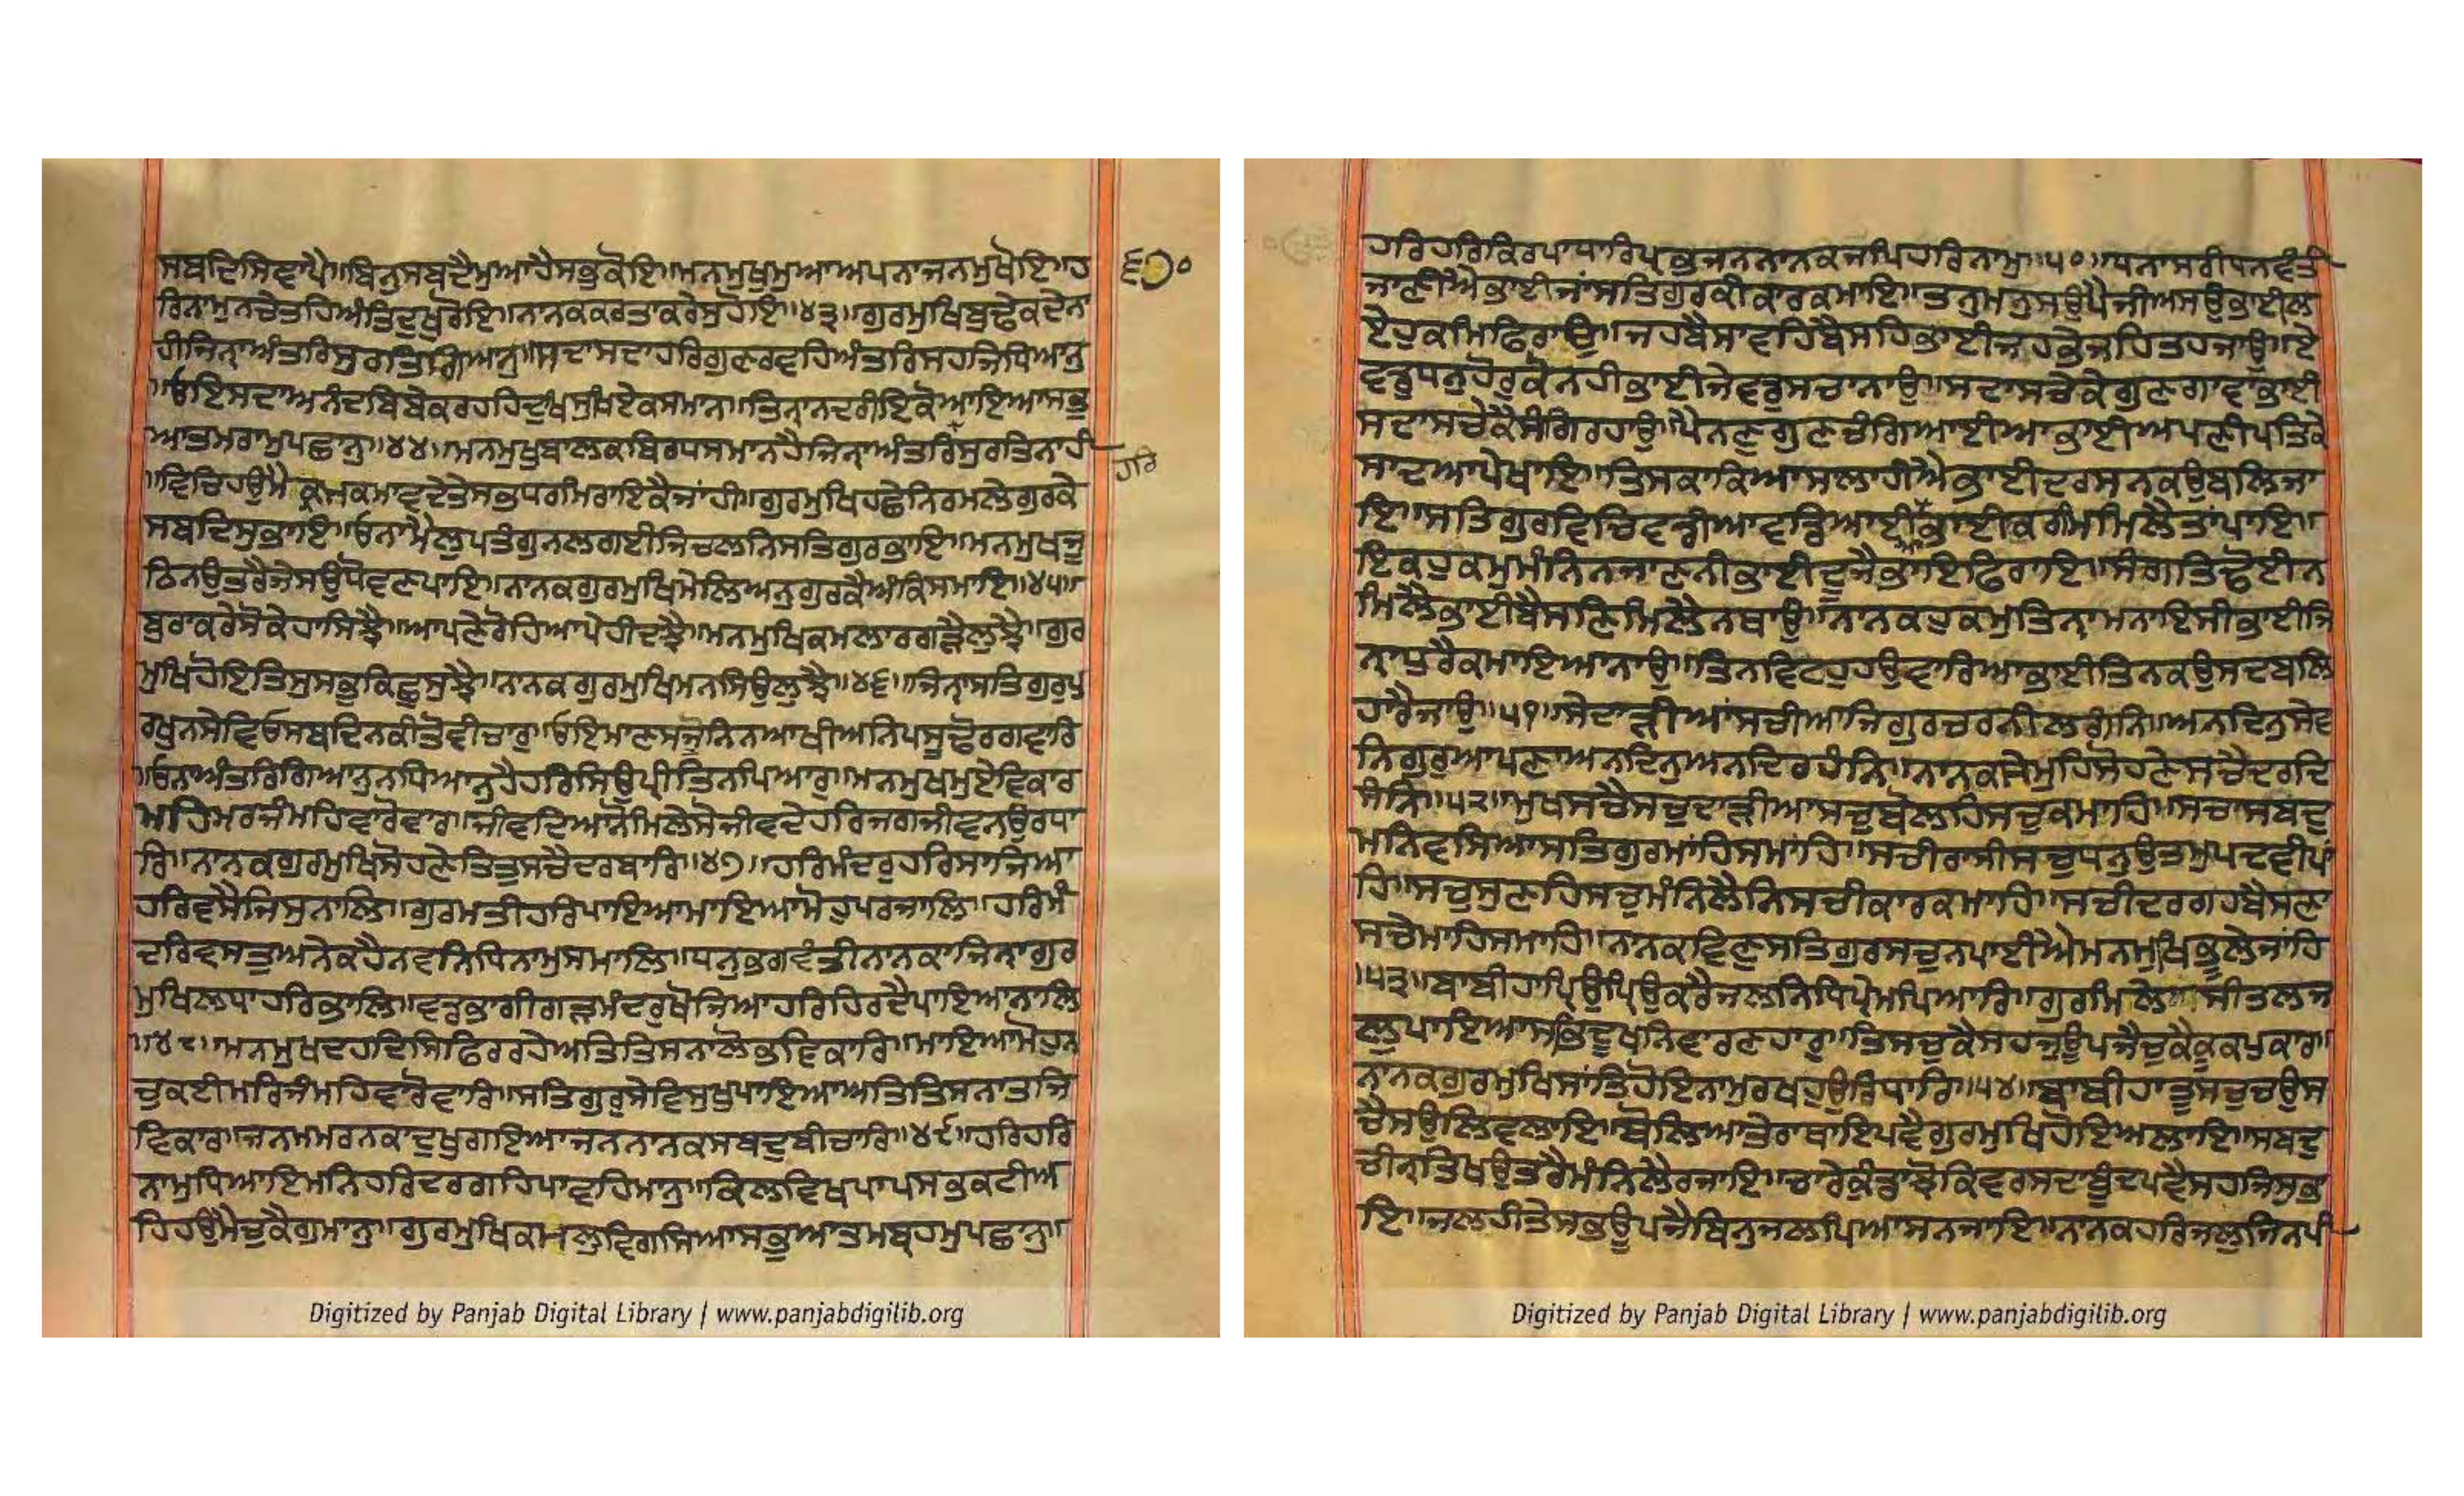 ਸਬਦਿਸਿਞਾਪੈ॥ਬਿਨੁਸਬਦੈਮੁਆਹੈਸਭੁਕੋਇ॥ਮਨਮੁਖੁਮੁਆਅਪਨਾਜਨਮੁਖੋਇ॥ਹ
੬੭੦
ਰਿਨਾਮੁਨਚੇਤਹਿਅੰਤਿਦੁਖੁਰੋਇ॥ਨਾਨਕਕਰਤਾਕਰੇਸੁਹੋਇ॥੪੩॥ਗੁਰਮੁਖਿਬੁਢੇਕਦੇਨਾ
ਹੀਜਿਨੑਾਅੰਤਰਿਸੁਰਤਿਗਿਆਨੁ॥ਸਦਾਸਦਾਹਰਿਗੁਣਰਵਹਿਅੰਤਰਿਸਹਜਿਧਿਆਨੁ
॥ਓਇਸਦਾਅਨੰਦਬਿਬੇਕਰਹਹਿਦੁਖਿਸੁਖਿਏਕਸਮਾਨ॥ਤਿਨੑਾਨਦਰੀਇਕੋਆਇਆਸਭੁ
ਆਤਮਰਾਮੁਪਛਾਨੁ॥੪੪॥ਮਨਮੁਖੁਬਾਲਕਬਿਰਧਸਮਾਨਹੈਜਿਨੑਾਅੰਤਰਿਸੁਰਤਿਨਾਹੀ
ਹਰਿ
॥ਵਿਚਿਹਉਮੈਕਮਕਮਾਵਦੇਤੇਸਭਧਰਮਿਰਾਇਕੈਜਾਂਹੀ॥ਗੁਰਮੁਖਿਹਛੇਨਿਰਮਲੇਗੁਰਕੇ
ਸਬਦਿਸੁਭਾਇ॥ਓਨਾਮੈਲੁਪਤੰਗੁਨਲਗਈਜਿਚਲਨਿਸਤਿਗੁਰਭਾਇ॥ਮਨਮੁਖਜੂ
ਠਿਨਉਤਰੈਜੇਸਉਧੋਵਣਪਾਇ॥ਨਾਨਕਗੁਰਮੁਖਿਮੇਲਿਅਨੁਗੁਰਕੈਅੰਕਿਸਮਾਇ॥੪੫॥
ਬੁਰਾਕਰੇਸੋਕੇਹਾਸਿਝੈ॥ਆਪਣੇਰੋਹਿਆਪੇਹੀਦਝੈ॥ਮਨਮੁਖਿਕਮਲਾਰਗੜੈਲੁਝੈ॥ਗੁਰ
ਮੁਖਿਹੋਇਤਿਸੁਸਭੁਕਿਛੁਸੁਝੈ॥ਨਾਨਕਗੁਰਮੁਖਿਮਨਸਿਉਲੁਝੈ॥੪੬॥ਜਿਨੑਾਸਤਿਗੁਰੁਪੁ
ਰਖੁਨਸੇਵਿਓਸਬਦਿਨਕੀਤੋਵੀਚਾਰੁ॥ਓਇਮਾਣਸਜੂਨਿਨਆਖੀਅਨਿਪਸੂਢੋਰਗਵਾਰਿ
॥ਓਨਾਅੰਤਰਿਗਿਆਨੁਨਧਿਆਨੁਹੈਹਰਿਸਿਉਪ੍ਰੀਤਿਨਪਿਆਰੁ॥ਮਨਮੁਖਮੁਏਵਿਕਾਰ
ਮਹਿਮਰਜੰਮਹਿਵਾਰੋਵਾਰ॥ਜੀਵਦਿਆਨੋਮਿਲੇਸੋਜੀਵਦੇਹਰਿਜਗਜੀਵਨਉਰਧਾ
ਰਿ॥ਨਾਨਕਗੁਰਮੁਖਿਸੋਹਣੇਤਿਤੁਸਚੈਦਰਬਾਰਿ॥੪੭॥ਹਰਿਮੰਦਰੁਹਰਿਸਾਜਿਆ
ਹਰਿਵਸੈਜਿਸੁਨਾਲਿ॥ਗੁਰਮਤੀਹਰਿਪਾਇਆਮਾਇਆਮੋਹੁਪਰਜਾਲਿ॥ਹਰਿਮੰ
ਦਰਿਵਸਤੁਅਨੇਕਹੈਨਵਨਿਧਿਨਾਮੁਸਮਾਲਿ॥ਧਨੁਭਗਵੰਤੀਨਾਨਕਾਜਿਨਾਗੁਰ
ਮੁਖਿਲਧਾਹਰਿਭਾਲਿ॥ਵਡਭਾਗੀਗੜਮੰਦਰੁਖੋਜਿਆਹਰਿਹਿਰਦੈਪਾਇਆਨਾਲਿ
॥੪੮॥ਮਨਮੁਖਦਹਦਿਸਿਫਿਰਰਹੇਅਤਿਤਿਸਨਾਲੋਭਵਿਕਾਰਿ॥ਮਾਇਆਮੋਹੁਨ
ਚੁਕਈਮਰਿਜੰਮਹਿਵਾਰੋਵਾਰਿ॥ਸਤਿਗੁਰੁਸੇਵਿਸੁਖੁਪਾਇਆਅਤਿਤਿਸਨਾਤਜਿ
ਵਿਕਾਰ॥ਜਨਮਮਰਨਕਾਦੁਖੁਗਇਆਜਨਨਾਨਕਸਬਦੁਬੀਚਾਰਿ॥੪੯॥ਹਰਿਹਰਿ
ਨਾਮੁਧਿਆਇਮਨਿਹਰਿਦਰਗਹਿਪਾਵਹਿਮਾਨੁ॥ਕਿਲਵਿਖਪਾਪਸਭੁਕਟੀਅ
ਹਿਹਉਮੈਚੁਕੈਗੁਮਾਨੁ॥ਗੁਰਮੁਖਿਕਮਲੁਵਿਗਸਿਆਸਭੁਆਤਮਬ੍ਰਹਮੁਪਛਾਨੁ॥
ਹਰਿਹਰਿਕਿਰਪਾਧਾਰਿਪ੍ਰਭਜਨਨਾਨਕਜਪਿਹਰਿਨਾਮੁ॥੫੦॥ਧਨਾਸਰੀਧਨਵੰਤੀ
ਜਾਣੀਐਭਾਈਜਾਂਸਤਿਗੁਰਕੀਕਾਰਕਮਾਇ॥ਤਨੁਮਨੁਸਉਪੈਜੀਅਸਉਭਾਈਲ
ਏਹੁਕਮਿਫਿਰਾਉ॥ਜਹਬੈਸਾਵਹਿਬੈਸਹਿਭਾਈਜਹਭੇਜਹਿਤਹਜਾਉ॥ਏ
ਵਡੁਧਨੁਹੋਰੁਕੋਨਹੀਭਾਈਜੇਵਡੁਸਚਾਨਾਉ॥ਸਦਾਸਚੇਕੇਗੁਣਗਾਵਾਭਾਈ
ਸਦਾਸਚੇਕੈਸੰਗਿਰਹਾਉ॥ਪੈਨਣੁਗੁਣਚੰਗਿਆਈਆਭਾਈਅਪਣੀਪਤਿਕੇ
ਸਾਦਆਪੇਖਾਇ॥ਤਿਸਕਾਕਿਆਸਲਾਹੀਐਭਾਈਦਰਸਨਕਉਬਲਿਜਾ
ਇ॥ਸਤਿਗੁਰਵਿਚਿਵਡੀਆਵਡਿਆਈਭਾਈਕਰਮਿਮਿਲੈਤਾਂਪਾਇ॥
ਇਕਹੁਕਮੁਮੰਨਿਨਜਾਣਨੀਭਾਈਦੂਜੈਭਾਇਫਿਰਾਇ॥ਸੰਗਤਿਢੋਈਨ
ਮਿਲੈਭਾਈਬੈਸਣਿਮਿਲੈਨਥਾਉ॥ਨਾਨਕਹੁਕਮੁਤਿਨੑਾਮਨਾਇਸੀਭਾਈਜਿ
ਨੑਾਧੁਰੈਕਮਾਇਆਨਾਉ॥ਤਿਨਵਿਟਹੁਹਉਵਾਰਿਆਭਾਈਤਿਨਕਉਸਦਬਲਿ
ਹਾਰੈਜਾਉ॥੫੧॥ਸੇਦਾੜੀਆਂਸਚੀਆਜਿਗੁਰਚਰਨੀਲਗੰਨਿ॥ਅਨਦਿਨੁਸੇਵ
ਨਿਗੁਰੁਆਪਣਾਅਨਦਿਨੁਅਨਦਿਰਹੰਨਿ॥ਨਾਨਕਸੇਮੁਹਿਸੋਹਣੇਸਚੈਦਰਦਿ
ਸੰਨਿ॥੫੨॥ਮੁਖਸਚੈਸਚੁਦਾੜੀਆਸਚੁਬੋਲਹਿਸਚੁਕਮਾਹਿ॥ਸਚਾਸਬਦੁ
ਮਨਿਵਸਿਆਸਤਿਗੁਰਮਾਂਹਿਸਮਾਂਹਿ॥ਸਚੀਰਾਸੀਸਚੁਧਨੁਉਤਮੁਪਦਵੀਪਾਂ
ਹਿ॥ਸਚੁਸੁਣਹਿਸਚੁਮੰਨਿਲੈਨਿਸਚੀਕਾਰਕਮਾਹਿ॥ਸਚੀਦਰਗਹਬੈਸਣਾ
ਸਚੇਮਾਹਿਸਮਾਹਿ॥ਨਾਨਕਵਿਣੁਸਤਿਗੁਰਸਚੁਨਪਾਈਐਮਨਮੁਖਿਭੂਲੇਜਾਂਹਿ
॥੫੩॥ਬਾਬੀਹਾਪ੍ਰਿਉਪ੍ਰਿਉਕਰੈਜਲਨਿਧਿਪ੍ਰੇਮਪਿਆਰਿ॥ਗੁਰਮਿਲੇਸੀਤਲਜ
ਲੁਪਾਇਆਸਭਿਦੂਖਨਿਵਾਰਣਹਾਰੁ॥ਤਿਸਚੁਕੈਸਹਜੁਊਪਜੈਚੁਕੈਕੂਕਪੁਕਾਰ॥
ਨਾਨਕਗੁਰਮੁਖਿਸਾਂਤਿਹੋਇਨਾਮੁਰਖਹੁਉਰਿਧਾਰਿ॥੫੪॥ਬਾਬੀਹਾਤੂਸਚੁਚਉਸ
ਚੈਸਉਲਿਵਲਾਇ॥ਬੋਲਿਆਤੇਰਾਥਾਇਪਵੈਗੁਰਮੁਖਿਹੋਇਅਲਾਇ॥ਸਬਦੁ
ਚੀਨੑਤਿਖਉਤਰੈਮੰਨਿਲੈਰਜਾਇ॥ਚਾਰੇਕੁੰਡਾਝੋਕਿਵਰਸਦਾਬੂੰਦਪਵੈਸਹਜਿਸੁਭਾ
ਇ॥ਜਲਹੀਤੇਸਭਊਪਜੈਬਿਨੁਜਲਪਿਆਸਨਜਾਇ॥ਨਾਨਕਹਰਿਜਲੁਜਿਨਪੀ
Digitized by Panjab Digital Library | www.panjabdigilib.org
Digitized by Panjab Digital Library | www.panjabdigilib.org